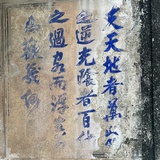 夫天地者萬物
之逆光陰者百代
之過客而浮
為歡幾何